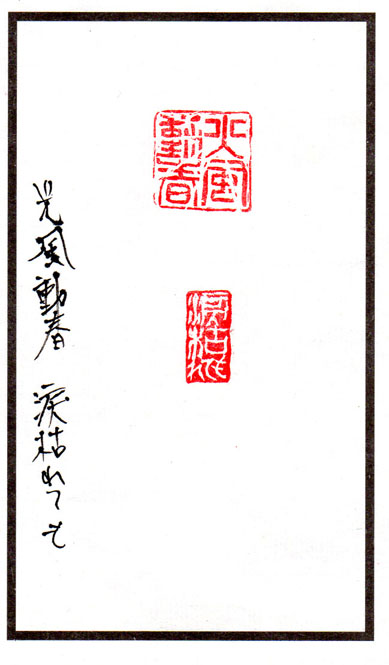 光風
動春
光風動春 涙枯れても